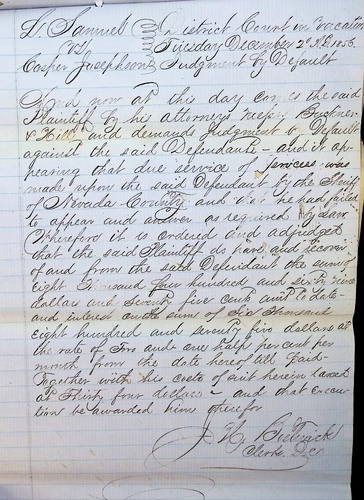 L. Samuel } District Court in Vacation
vs } Tuesday December 2d A.D. 1856
Casper Josephson } Judgment by Default
And now at this day comes the said
Plaintiff by his attorneys Messrs Buckner
& Hill and demands Judgment by Default
against the said Defendants - and it ap-
pearing that due service of services was
made upon the said Defendant by the Sheriff
of Nevada County and that he had failed
to appear and answer as required by law
Wherefore it is ordered and adjudged
that the said Plaintiff do have and recover
of and from the said Defendant the sum of
Eight Thousand four hundred and sixty nine
dollars and seventy five cents amt to date
and interest on the sum of Six Thousand
Eight hundred and seventy five dollars at
the rate of Two and one half per cent per
month from the date hereof till paid -
Together with his costs of suit herein taxed
at Thirty four dollars - and that Execu-
tion be awarded him therefor
Clerk D.C.